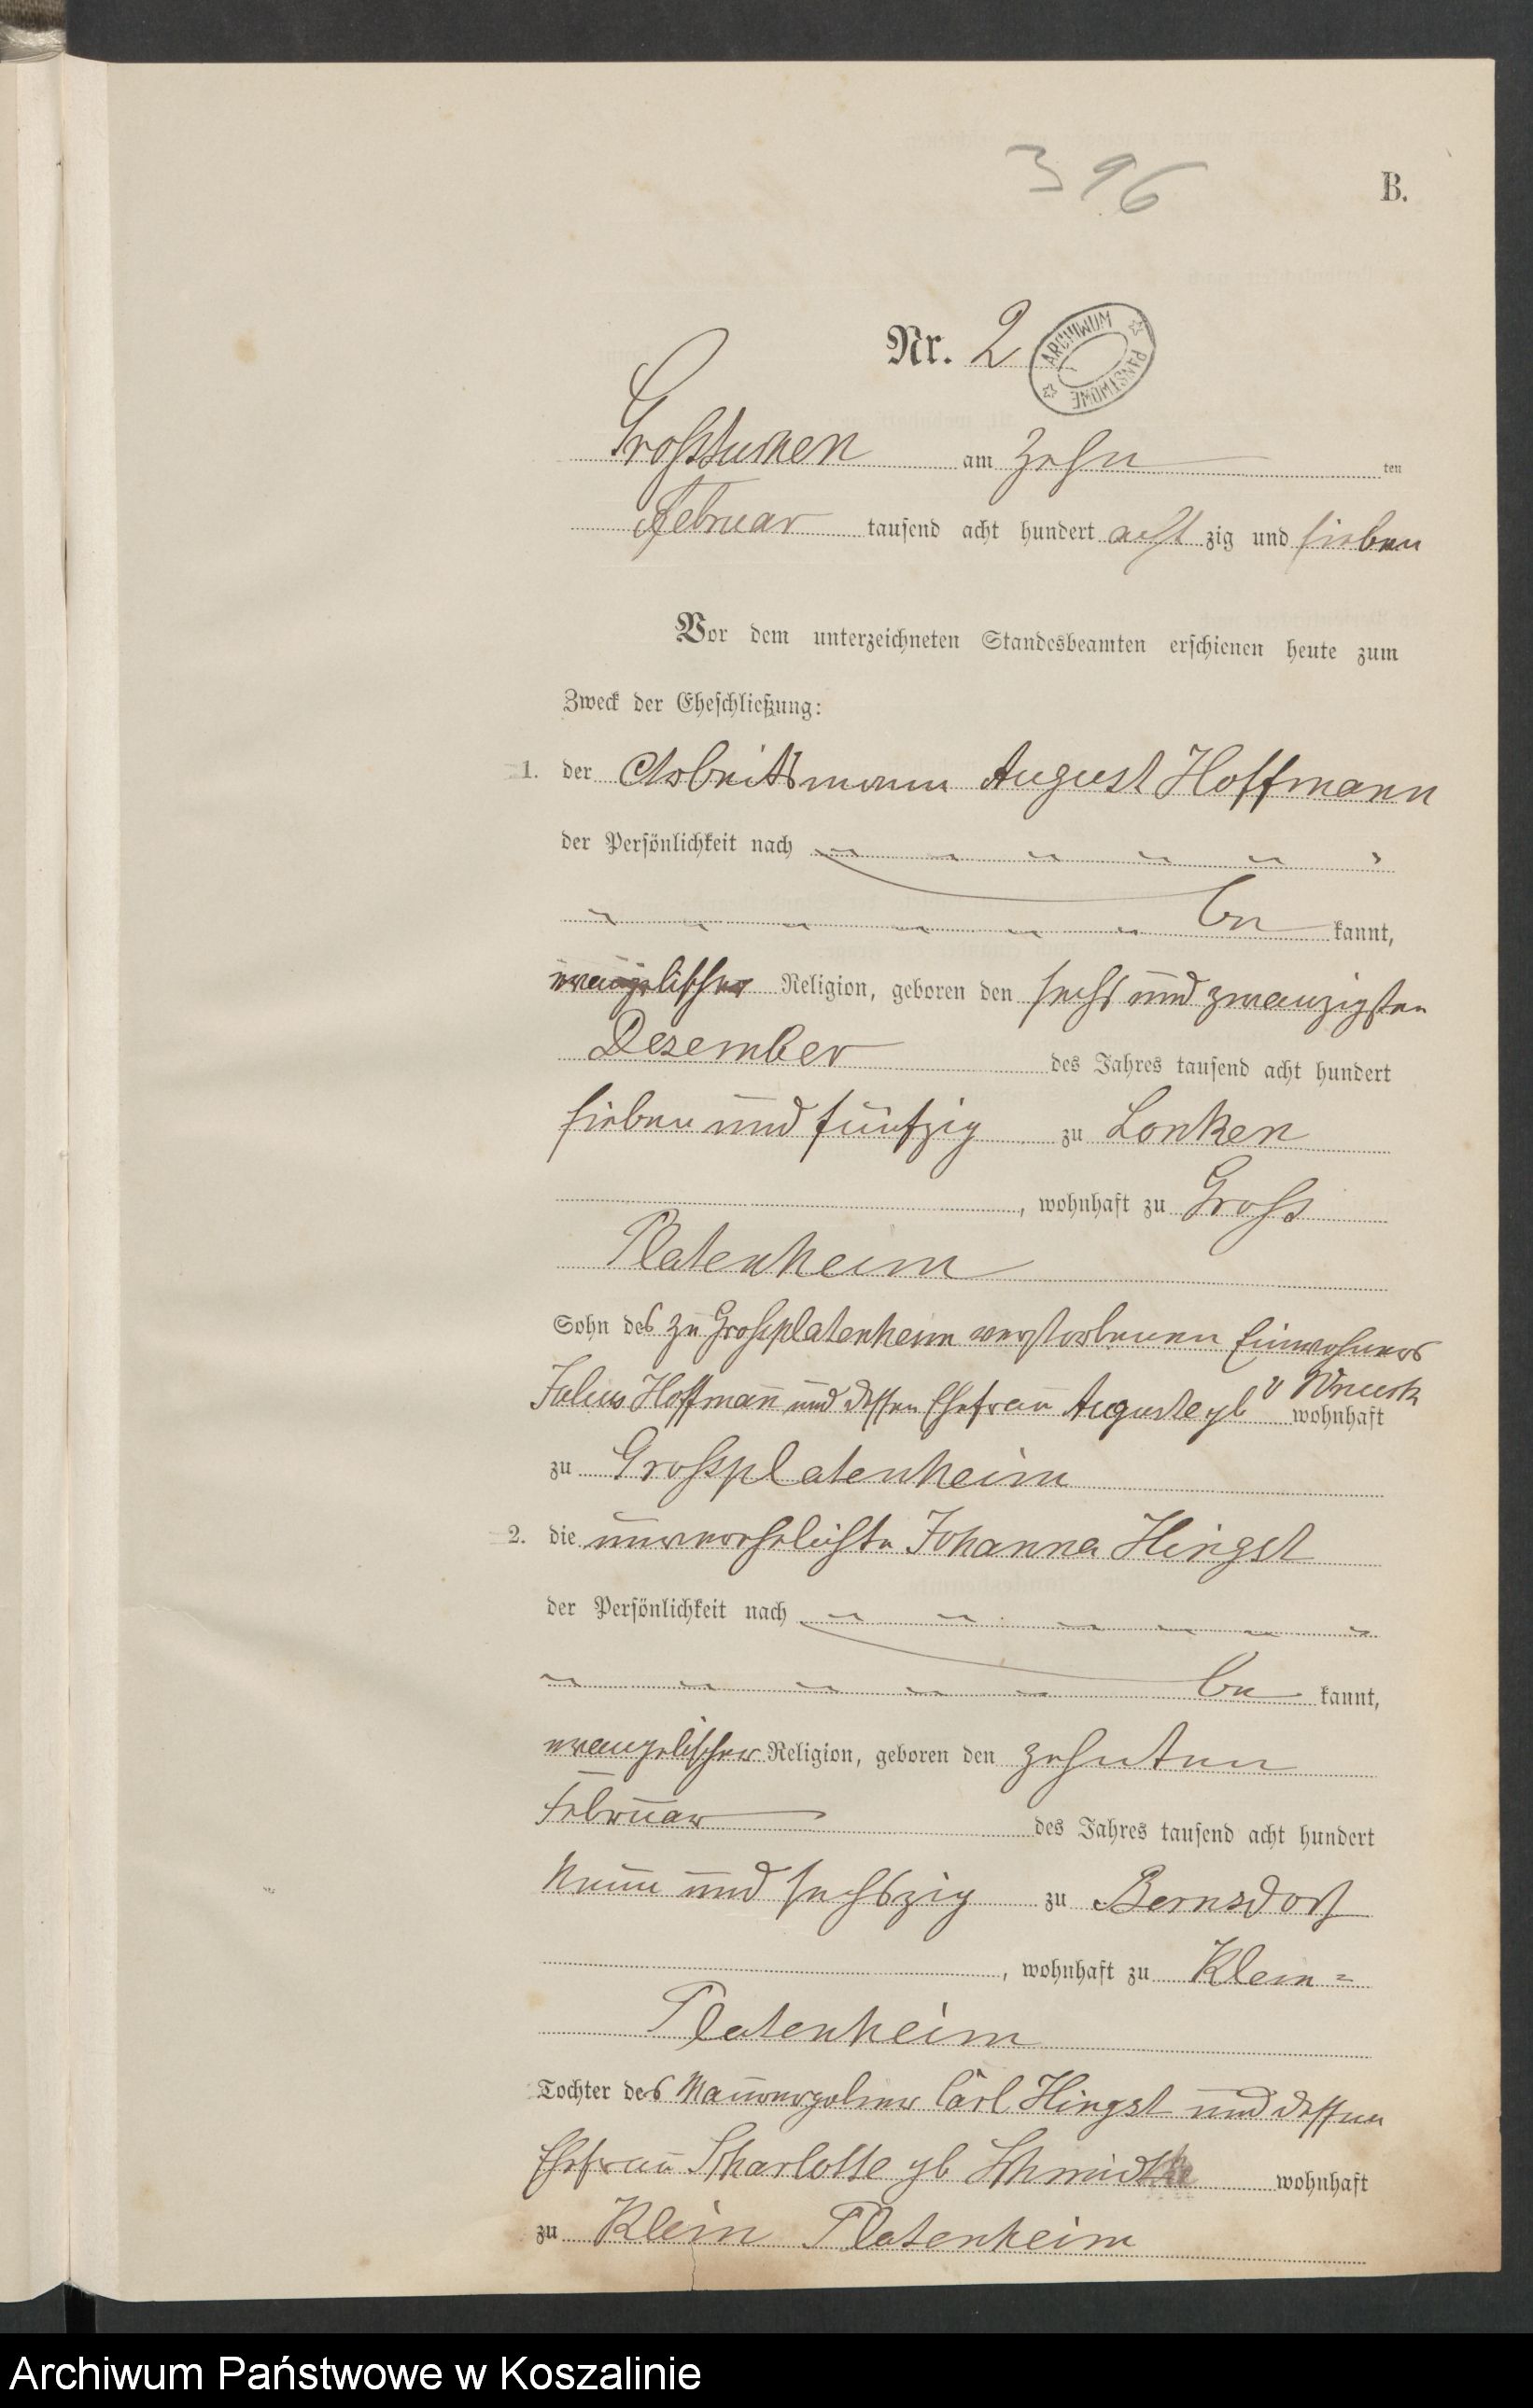 396
B.
Nr. 2
ARCHIWUM PAŃSTWOWE
Grosstuchen am zehn ten
Februar tausend acht hundert acht zig und sieben
Vor dem unterzeichneten Standesbeamten erschienen heute zum
Zweck der Eheschließung:
1. der Arbeitsmann August Hoffmann
der Persönlichkeit nach
be kannt,
evangelischer Religion, geboren den sechs und zwanzigsten
Dezember des Jahres tausend acht hundert
sieben und fünfzig zu Lonken
, wohnhaft zu Gross
Platenheim
Sohn des zu Grossplatenheim verstorbenen Einwohners
Julius Hoffmann und dessen Ehefrau Auguste gb
wohnhaft
zu Grossplatenheim
2. die unverehelichte Johanna Hingst
der Persönlichkeit nach
be kannt,
evangelischer Religion, geboren den zehnten
Februar des Jahres tausend acht hundert
neun und sechszig zu Bernsdorf
, wohnhaft zu Klein=
Platenheim
Tochter des Maurergesellen Carl Hingst und dessen
Ehefrau Charlotte gb wohnhaft
zu Klein Platenheim
Archiwum Państwowe w Koszalinie